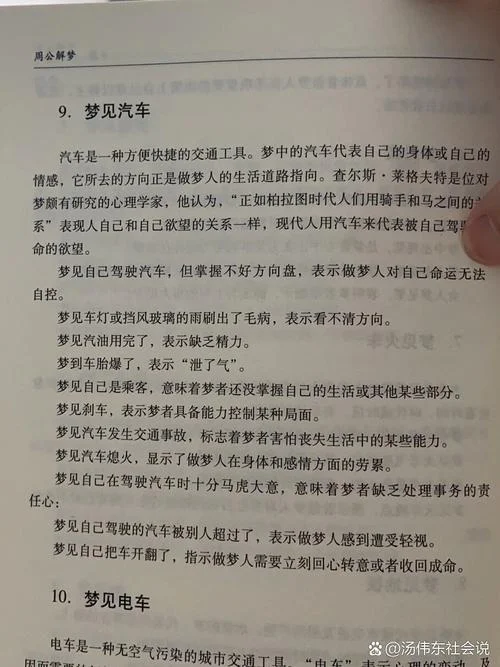 周公解梦
9. 梦见汽车
汽车是一种方便快捷的交通工具。梦中的汽车代表自己的身体或自己的
情感，它所去的方向正是做梦人的生活道路指向。查尔斯·莱格夫特是位对
梦颇有研究的心理学家，他认为，“正如柏拉图时代人们用骑手和马之间的关
系”表现人自己和自己欲望的关系一样，现代人用汽车来代表被自己驾驶
命的欲望。
梦见自己驾驶汽车，但掌握不好方向盘，表示做梦人对自己命运无法
自控。
梦见车灯或挡风玻璃的雨刷出了毛病，表示看不清方向。
梦见汽油用完了，表示缺乏精力。
梦到车胎爆了，表示“泄了气”。
梦见自己是乘客，意味着梦者还没掌握自己的生活或其他某些部分。
梦见刹车，表示梦者具备能力控制某种局面。
梦见汽车发生交通事故，标志着梦者害怕丧失生活中的某些能力。
梦见汽车熄火，显示了做梦人在身体和感情方面的劳累。
梦见自己在驾驶汽车时十分马虎大意，意味着梦者缺乏处理事务的责
任心；
梦见自己驾驶的汽车被别人超过了，表示做梦人感到遭受轻视。
梦见自己把车开翻了，指示做梦人需要立刻回心转意或者收回成命。
10. 梦见电车
电车是一种无空气污染的城市交通工具。“电车”表示
@汤伟东社会说